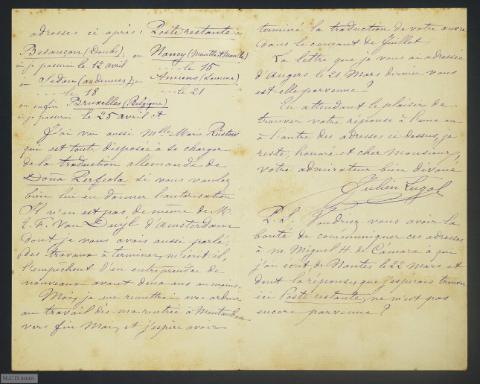 adresses ci après: Poste restante à
Besançon (Doubs), ou Nancy (Meurthe et Moselle)
où je passerai le 12 avril le 15
ou Sedan (ardennes), ou Amiens (Somme)
le 18 le 21
ou enfin Bruxelles (Belgique)
où je passerai le 25 avril
J'ai vu aussi Mlle Marie
que est toute disposée à se charger
de la traduction allemande de
Doña Perfecta si vous voulez
bien lui en donner l'autorisation
Il n'en est pas de même de M.
Van Duyl d'Amsterdam
dont je vous avais aussi parlé,
des travaux à terminer,
l'empêchent d'en entreprendre de
nouveaux avant deux ans au moins.
Moi, je me remettrai avec ardeur
au travail dès ma rentrée à Montauban
vers fin Mai, et j'espère avoir
terminé la traduction de votre œuvre
dans le courant de Juillet.
La lettre que je vous ai adressée
d'Angers le 21 Mars dernier vous
est-elle parvenue?
En attendant le plaisir de
trouver votre réponse à l'une ou
à l'autre des adresses ci dessus, je
reste, honoré et cher monsieur,
votre admirateur bien dévoué
Julien Lugol
P.S. Voudriez vous avoir la
bonté de communiquer ces adresses
à M. Miguel H. de Cámara à qui
j'ai écrit de Nantes le 22 mars et
dont la réponse, que j'espérais trouver
ici Poste restante, ne m'est pas
encore parvenue?